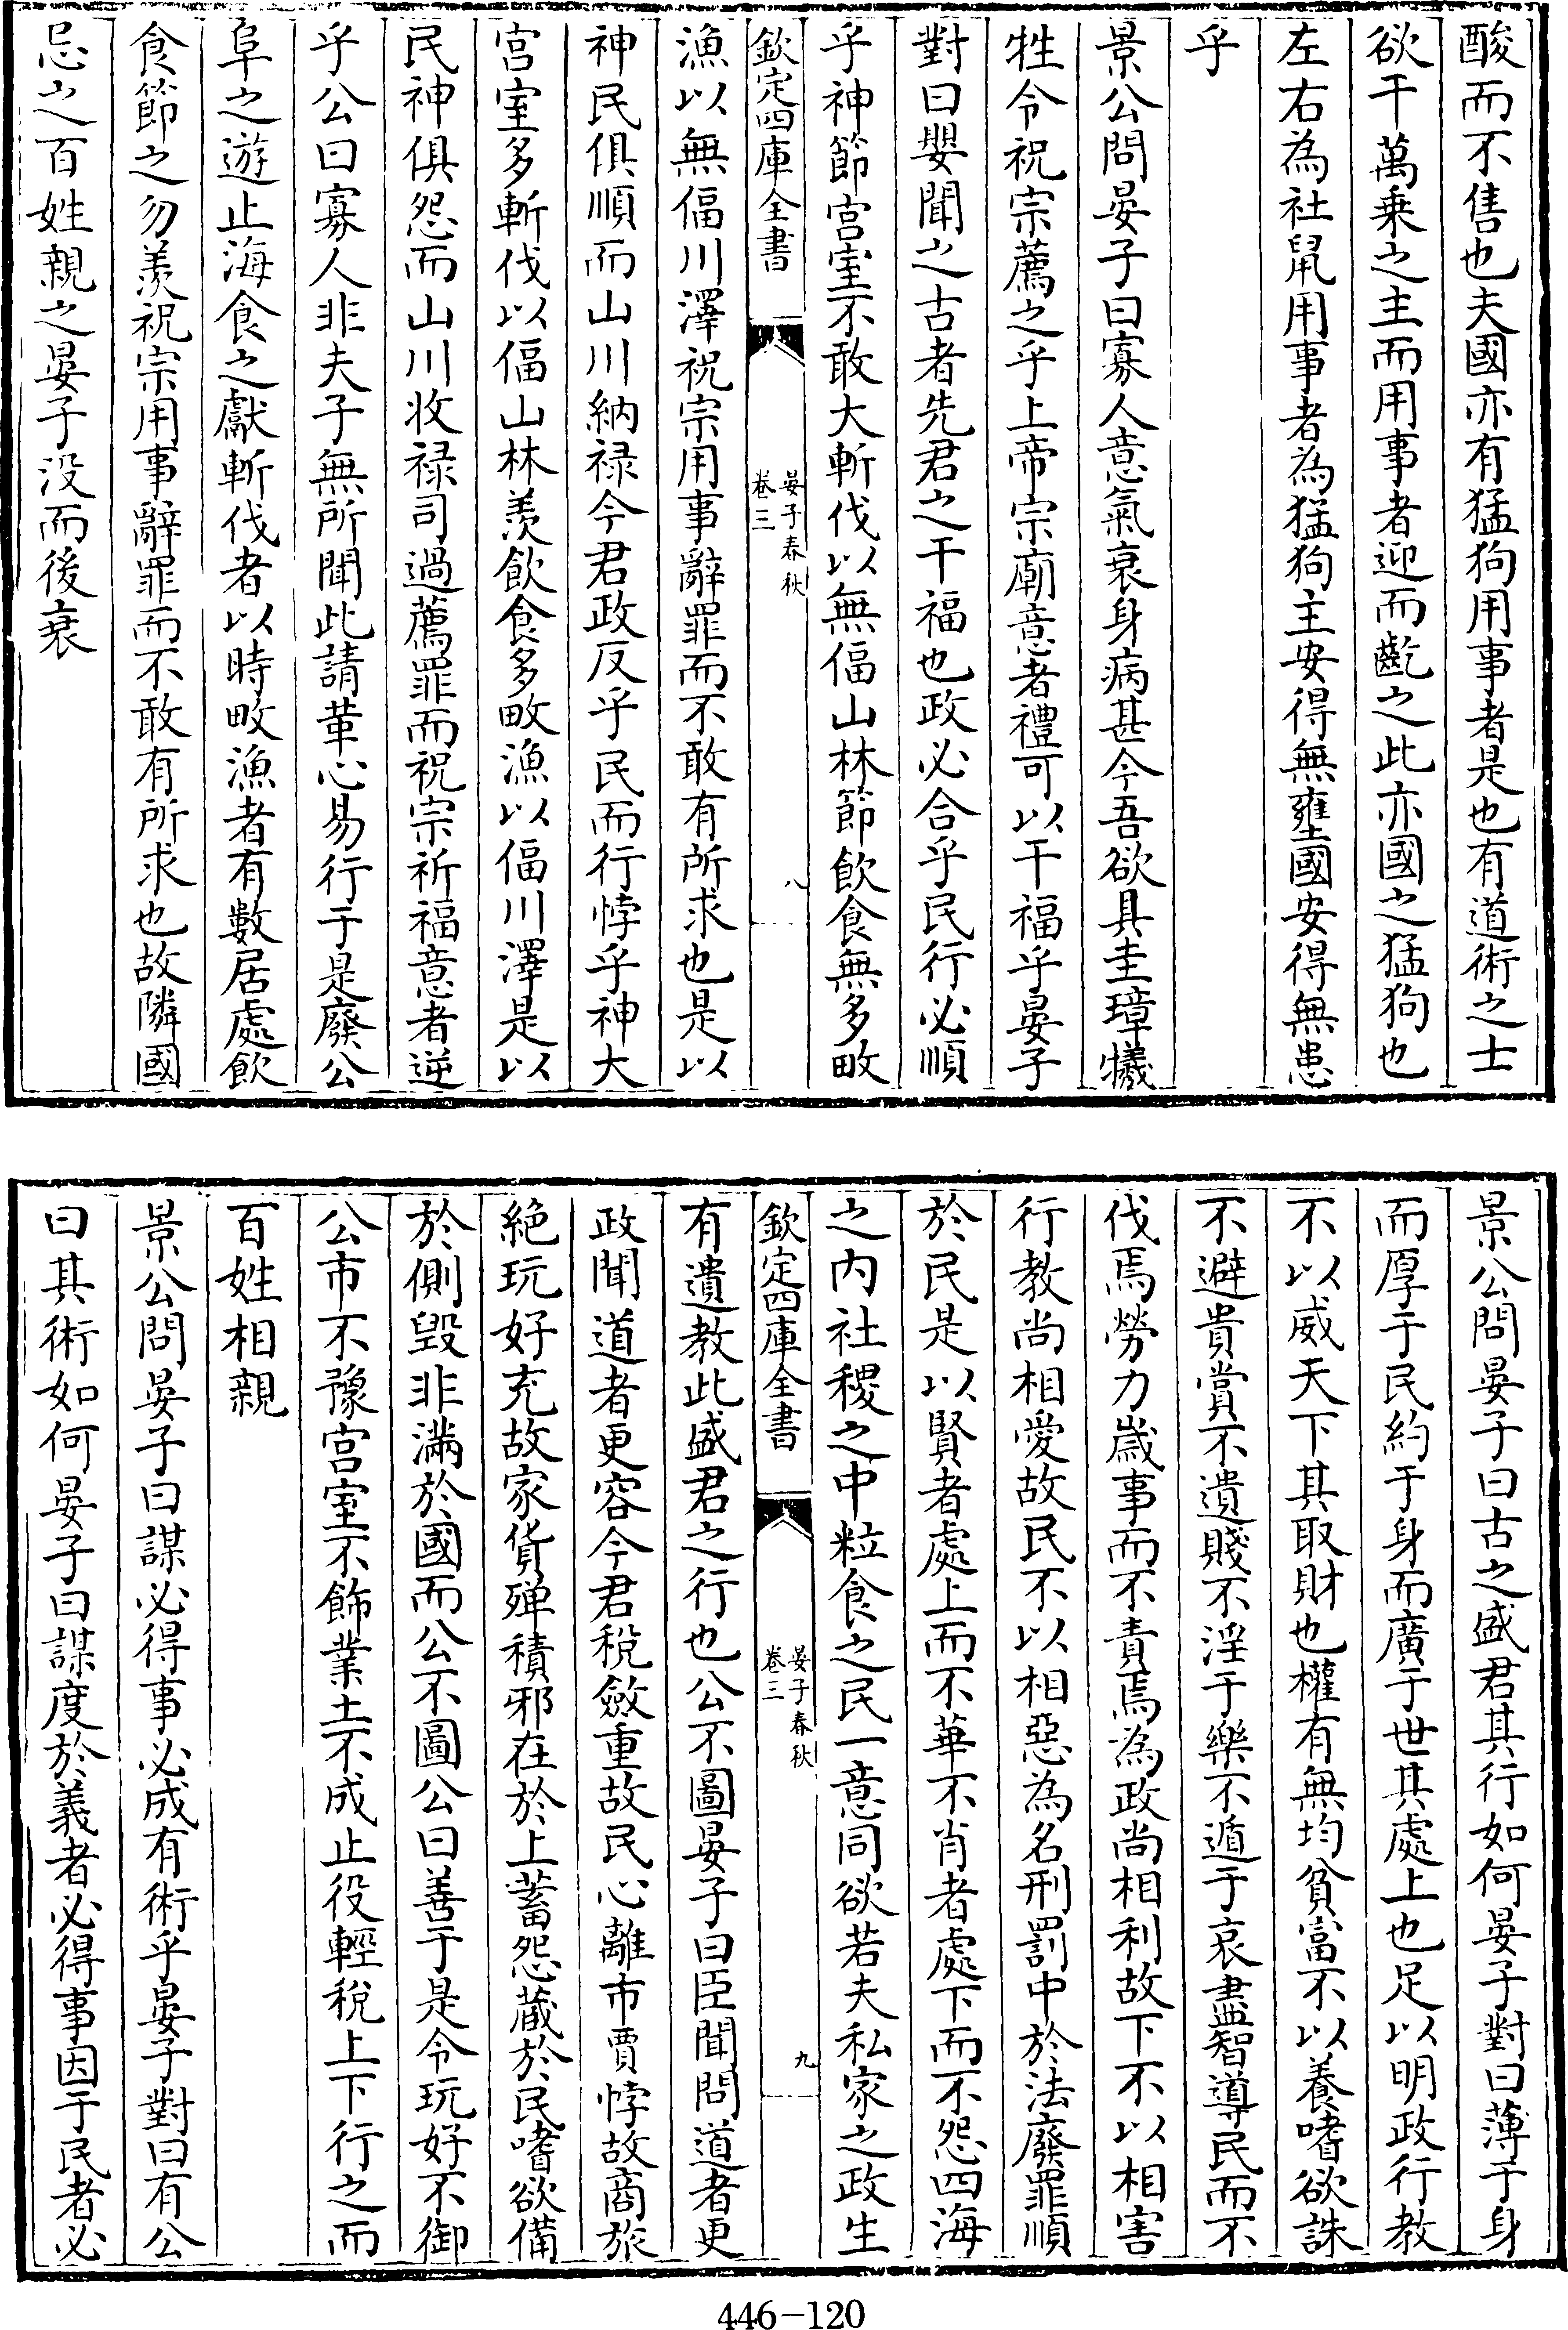 酸而不售也夫國亦有猛狗用事者是也有道術之士
欲干萬乗之主而用事者迎而齕之此亦國之猛狗也
左右為社鼠用事者為猛狗主安得無壅國安得無患
乎
景公問晏子曰寡人意氣衰身病甚今吾欲具圭璋犧
牲令祝宗薦之乎上帝宗廟意者禮可以干福乎晏子
對曰嬰聞之古者先君之干福也政必合乎民行必順
乎神節宫室不敢大斬伐以無偪山林節飲食無多畋
欽定四庫全書
晏子春秋
卷三
八
漁以無偪川澤祝宗用事辭罪而不敢有所求也是以
神民俱順而山川納禄今君政反乎民而行悖乎神大
宫室多斬伐以偪山林羨飲食多畋漁以偪川澤是以
民神俱怨而山川收禄司過薦罪而祝宗祈福意者逆
乎公曰寡人非夫子無所聞此請革心易行于是廢公
阜之遊止海食之獻斬伐者以時畋漁者有數居處飲
食節之勿羨祝宗用事辭罪而不敢有所求也故隣國
忌之百姓親之晏子没而後衰
景公問晏子曰古之盛君其行如何晏子對曰薄于身
而厚于民約于身而廣于世其處上也足以明政行教
不以威天下其取財也權有無均貧富不以養嗜欲誅
不避貴賞不遺賤不淫于樂不遁于哀盡智導民而不
伐焉勞力歲事而不責焉為政尚相利故下不以相害
行教尚相愛故民不以相惡為名刑罰中於法廢罪順
於民是以賢者處上而不華不肖者處下而不怨四海
之内社稷之中粒食之民一意同欲若夫私家之政生
欽定四庫全書
晏子春秋
卷三
九
有遺教此盛君之行也公不圖晏子曰臣聞問道者更
政聞道者更容今君税斂重故民心離市賈悖故商旅
絶玩好充故家貨殫積邪在於上蓄怨藏於民嗜欲備
於側毁非滿於國而公不圖公曰善于是令玩好不御
公市不豫宫室不飾業土不成止役輕税上下行之而
百姓相親
景公問晏子曰謀必得事必成有術乎晏子對曰有公
曰其術如何晏子曰謀度於義者必得事因于民者必
446-120